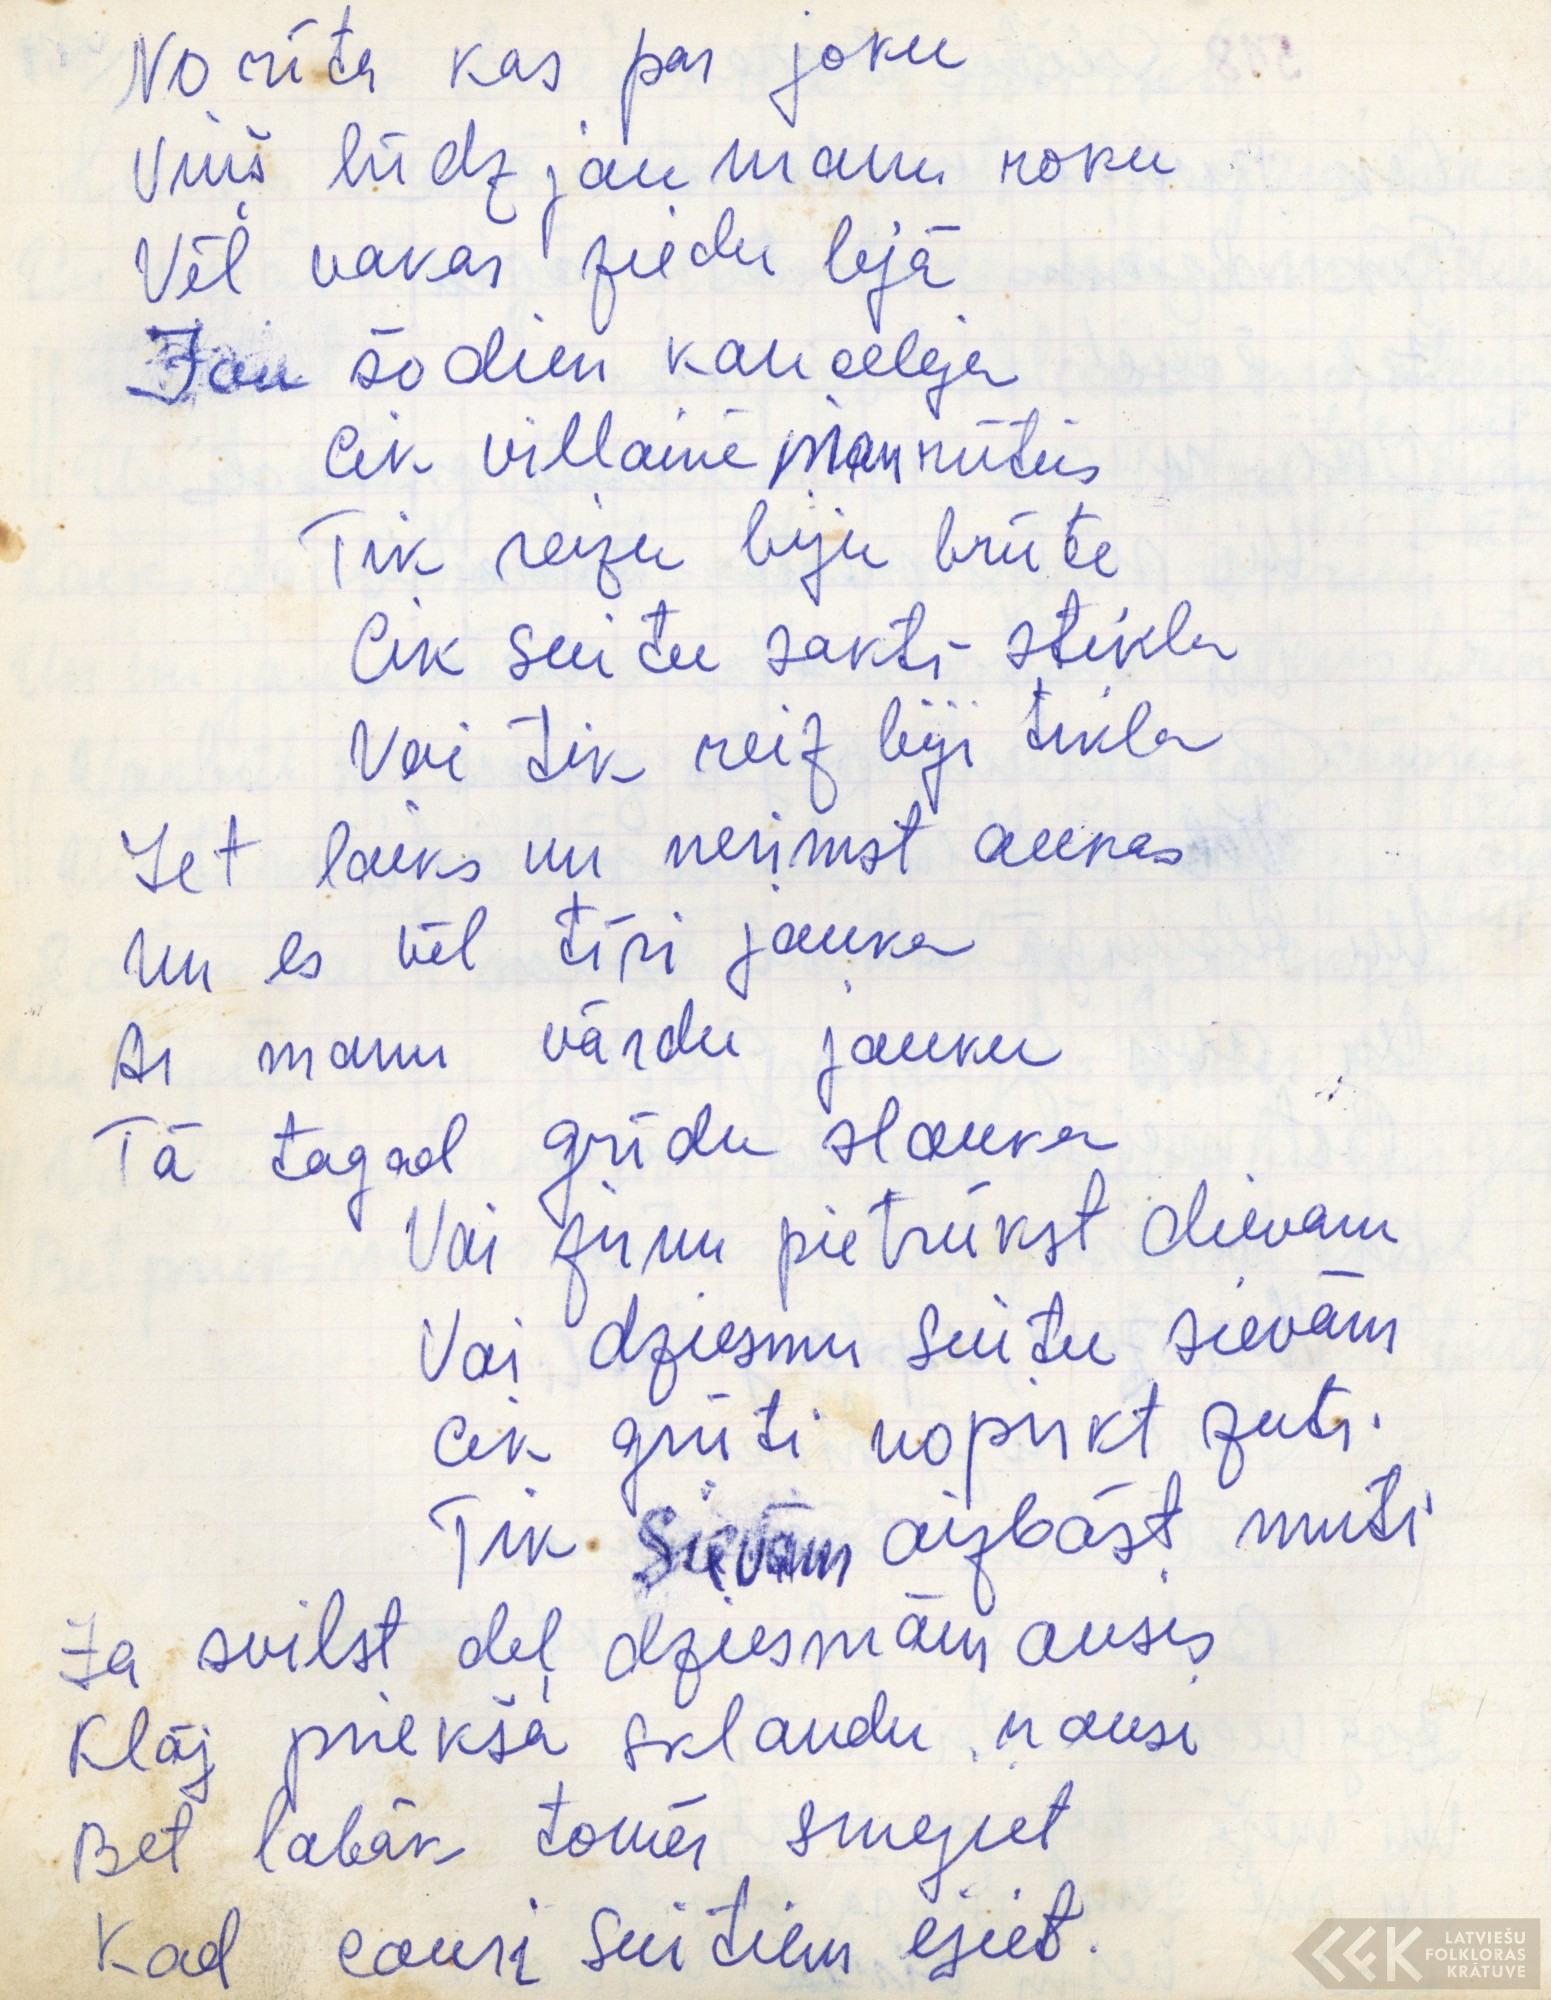 No rīta kas par joku
Viņš lūdz jau manu roku
Vēl vakar ziedu lejā
Jau šodien kancelejā
Cik villainē man rūtis
Tik reizu biju brūte
Cik suitu sakti stikla
Vai tik reiz biji tikla
Iet laiks un nerimst aukas
Un es vēl tīri jauka
Ar manu vārdu jauku
Tā tagad grīdu slauka
Vai zirņu pietrūkst dievam
Vai dziesmu suitu sievām
Cik grūti nopirkt zuti.
Tik sievām aizbāst muti
Ja svilst dēļ dziesmām ausis
Klāj priekšā sklandu rausi
Bet labāk tomēr smejiet
Kad cauri suitiem ejiet.
LATVIEŠU
FOLKLORAS
KRĀTUVE